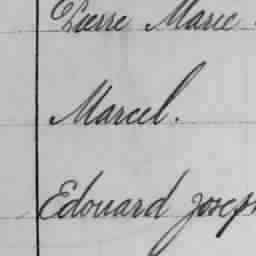 Pierre Marie
Marcel.
Edouard Joseph